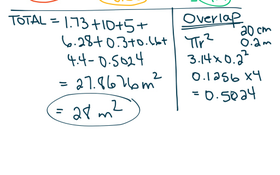 TOTAL = 1.73+10+5+
6.28+0.3+0.66+
4.4-0.5024
= 27.8676 m²
= 28 m²
Overlap
πr² 20 cm
0.2m
3.14×0.2²
0.1256 ×4
= 0.5024